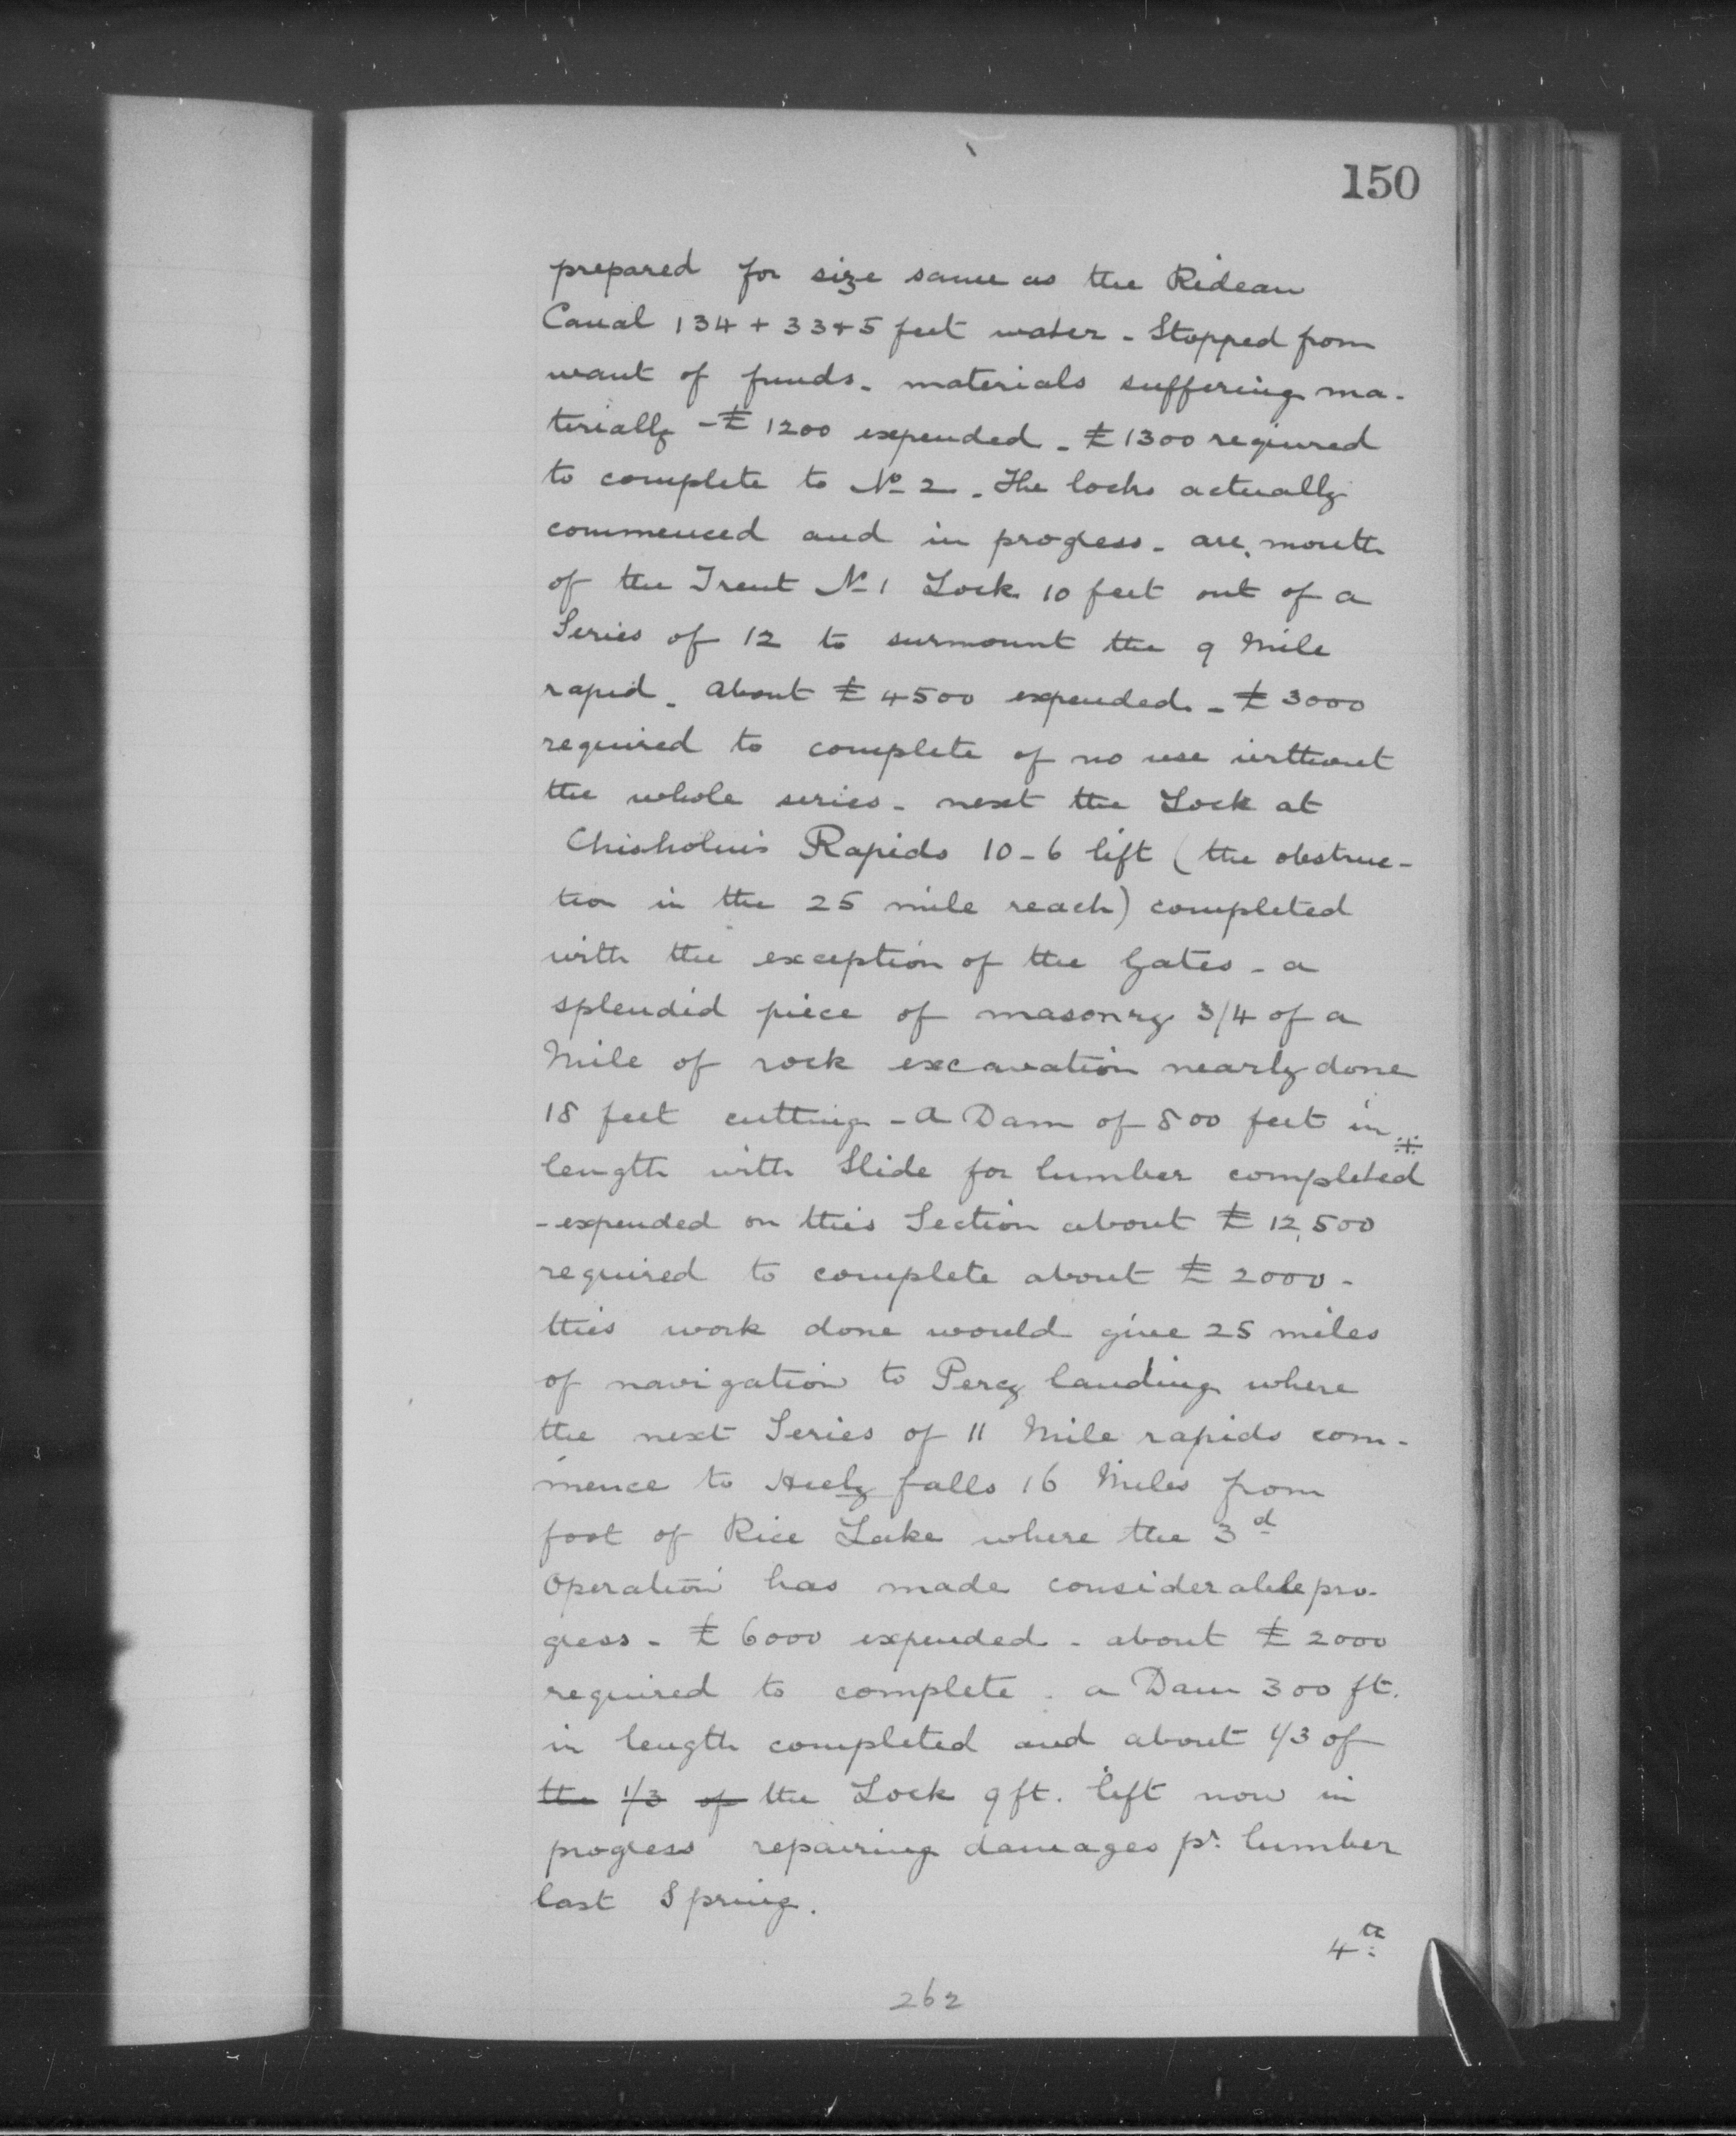 150
prepared for size same as the Rideau
Canal 134 + 33 + 5 feet water - Stopped from
want of funds - materials suffering ma-
terially - £ 1200 expended - £ 1300 required
to complete to No 2 - The locks actually
commenced and in progress - are, mouth
of the Trent No 1 Lock 10 feet out of a
Series of 12 to surmount the 9 Mile
rapid - About £ 4500 expended - £ 3000
required to complete of no use without
the whole series - next the Lock at
Chisholm's Rapids 10-6 lift (the obstruc-
tion in the 25 mile reach) completed
with the exception of the Gates - a
splendid piece of masonry 3/4 of a
Mile of rock excavation nearly done
18 feet cutting - A Dam of 800 feet in
length with Slide for lumber completed
- expended on this Section about £ 12,500
required to complete about £ 2000 -
this work done would give 25 miles
of navigation to Percy landing where
the next Series of 11 Mile rapids com-
mence to Heely falls 16 Miles from
foot of Rice Lake where the 3d
Operation has made considerable pro-
gress - £ 6000 expended - about £ 2000
required to complete . a Dam 300 ft.
in length completed and about 1/3 of
the 1/3 of the Lock 9 ft. lift now in
progress repairing damages pr. lumber
last Spring.
4th
262